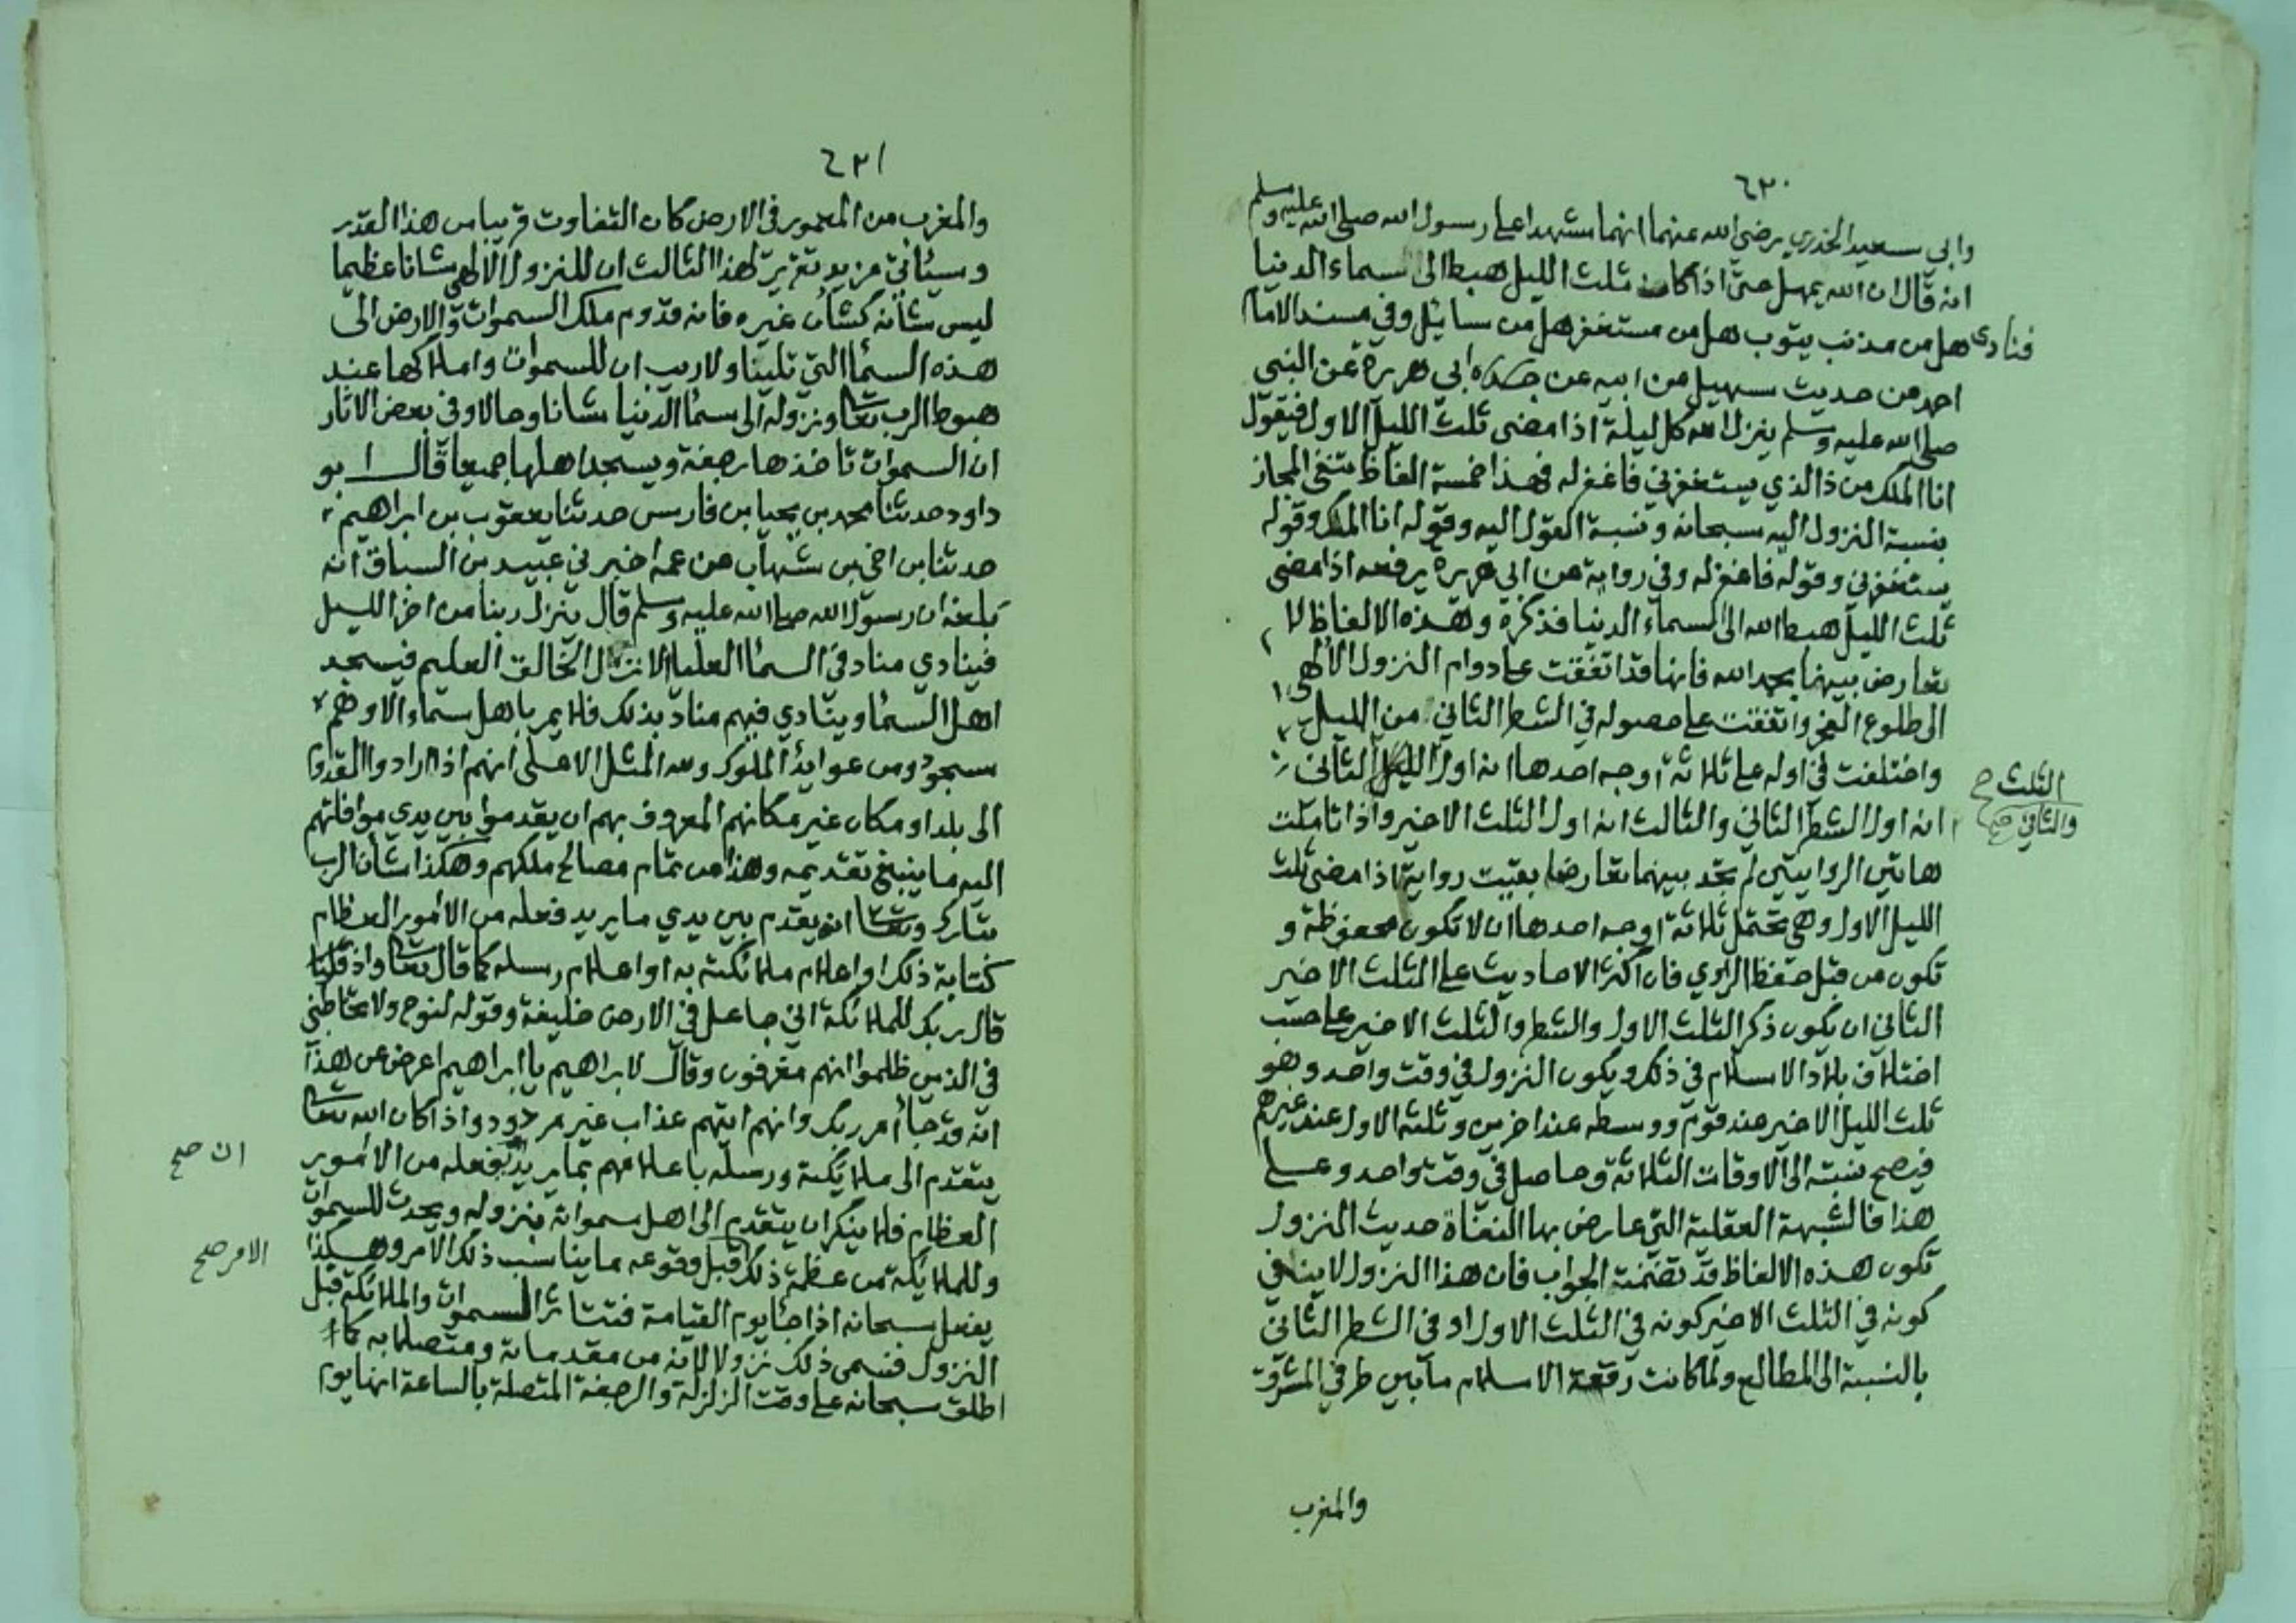 ٦٣٠
وابي سعيد الخدري رضي الله عنهما انهما شهدا على رسول الله صلى الله عليه وسلم
انه قال ان الله يمهل حتى اذا كان ثلث الليل هبط الى سماء الدنيا
فنادى هل من مذنب يتوب هل من مستغفر هل من سائل وفي مسند الامام
احمد من حديث سهيل عن ابيه عن ابي هريرة عن النبي
صلى الله عليه وسلم ينزل الله كل ليلة اذا مضى ثلث الليل الاول فيقول
انا الملك من ذا الذي يستغفرني فاغفر له فهذا خمسة الفاظ تنفي المجاز
بنسبة النزول اليه سبحانه ونسبة القول اليه وقوله انا الملك وقوله
يستغفرني وقوله فاغفر له وفي رواية عن ابي هريرة يرفعه اذا مضى
ثلث الليل هبط الله الى السماء الدنيا فذكره وهذه الالفاظ لا
تعارض بينها بحمد الله فانها قد اتفقت على دوام النزول الالهي
الى طلوع الفجر واتفقت على حصوله في الشطر الثاني من الليل
واختلفت في اوله على ثلاثة اوجه احدها انه اول الليل الثاني
انه اول الشطر الثاني والثالث انه اول الثلث الاخير واذا تاملت
هاتين الروايتين لم تجد بينهما تعارضا بقيت رواية اذا مضى ثلث
الليل الاول وهي تحتمل ثلاثة اوجه احدها ان لا تكون محفوظة و
تكون من قبل حفظ الراوي فان اكثر الاحاديث على الثلث الاخير
الثاني ان يكون ذكر الثلث الاول والشطر والثلث الاخير على حسب
اختلاف بلاد الاسلام في ذلك ويكون النزول في وقت واحد وهو
ثلث الليل الاخير عند قوم ووسطه عند اخرين وثلثه الاول عند غيرهم
فيصح نسبته الى الاوقات الثلاثة وحاصل في وقت واحد وعلى
هذا فالشبهة العقلية التي عارض بها النفاة حديث النزول
تكون هذه الالفاظ قد تضمنت الجواب فان هذا النزول لا ينافي
كونه في الثلث الاخير كونه في الثلث الاول او في الشطر الثاني
بالنسبة الى المطالع ولما كانت رقعة الاسلام ما بين طرفي المشرق
والمغرب
الثلث صح
والثاني صح
٦٣١
والمغرب من المعمور في الارض كان التفاوت قريبا من هذا القدر
وسياتي مزيد تقرير لهذا الثالث ان للنزول الالهي شانا عظيما
ليس شانه كشان غيره فانه قدوم ملك السموات والارض الى
هذه السماء التي تلينا ولا ريب ان للسموات واملاكها عند
هبوط الرب تعالى ونزوله الى سماء الدنيا شانا وحالا وفي بعض الاثار
ان السموات تاخذها رجفة ويسجد اهلها جميعا قال ابو
داود حدثنا محمد بن يحيا بن فارس حدثنا يعقوب بن ابراهيم
حدثنا بن اخي بن شهاب عن عمه اخبرني عبيد بن السباق انه
بلغه ان رسول الله صلى الله عليه وسلم قال ينزل ربنا من اخر الليل
فينادي مناد في السماء العليا الا نزل الخالق العليم فيسجد
اهل السماء وينادي فيهم مناد بذلك فلا يمر باهل سماء الا وهم
سجود ومن عوايد الملوك ولله المثل الاعلى انهم اذا ارادوا القدوم
الى بلد او مكان غير مكانهم المعروف بهم ان يقدموا بين يدي موافاتهم
اليه ما ينبغي تقديمه وهذا من تمام مصالح ملكهم وهكذا شان الرب
تبارك وتعالى انه يقدم بين يدي ما يريد فعله من الامور العظام
كتابة ذلك او اعلام ملائكته به او اعلام رسله كما قال تعالى واذ
قال ربك للملائكة اني جاعل في الارض خليفة وقوله لنوح ولا تخاطبني
في الذين ظلموا انهم مغرقون وقال لابراهيم يا ابراهيم اعرض عن هذا
انه قد جاء امر ربك وانهم اتيهم عذاب غير مردود واذا كان الله تعالى
يتقدم الى ملائكته ورسله باعلامهم بما يريد يفعله من الامور
العظام فلا ينكر ان يتقدم الى اهل سمواته بنزوله ويحدث للسموات
وللملائكة من عظمة ذلك قبل وقوعه ما يناسب ذلك الامر وهكذا
يفعل سبحانه اذا جاء يوم القيامة فتتاثر السموات والملائكة قبل
النزول فسمى ذلك نزولا لانه من مقدماته ومتصلا به كما
اطلق سبحانه على وقت الزلزلة والرجفة المتصلة بالساعة انها يوم
ان صح
الامر صح